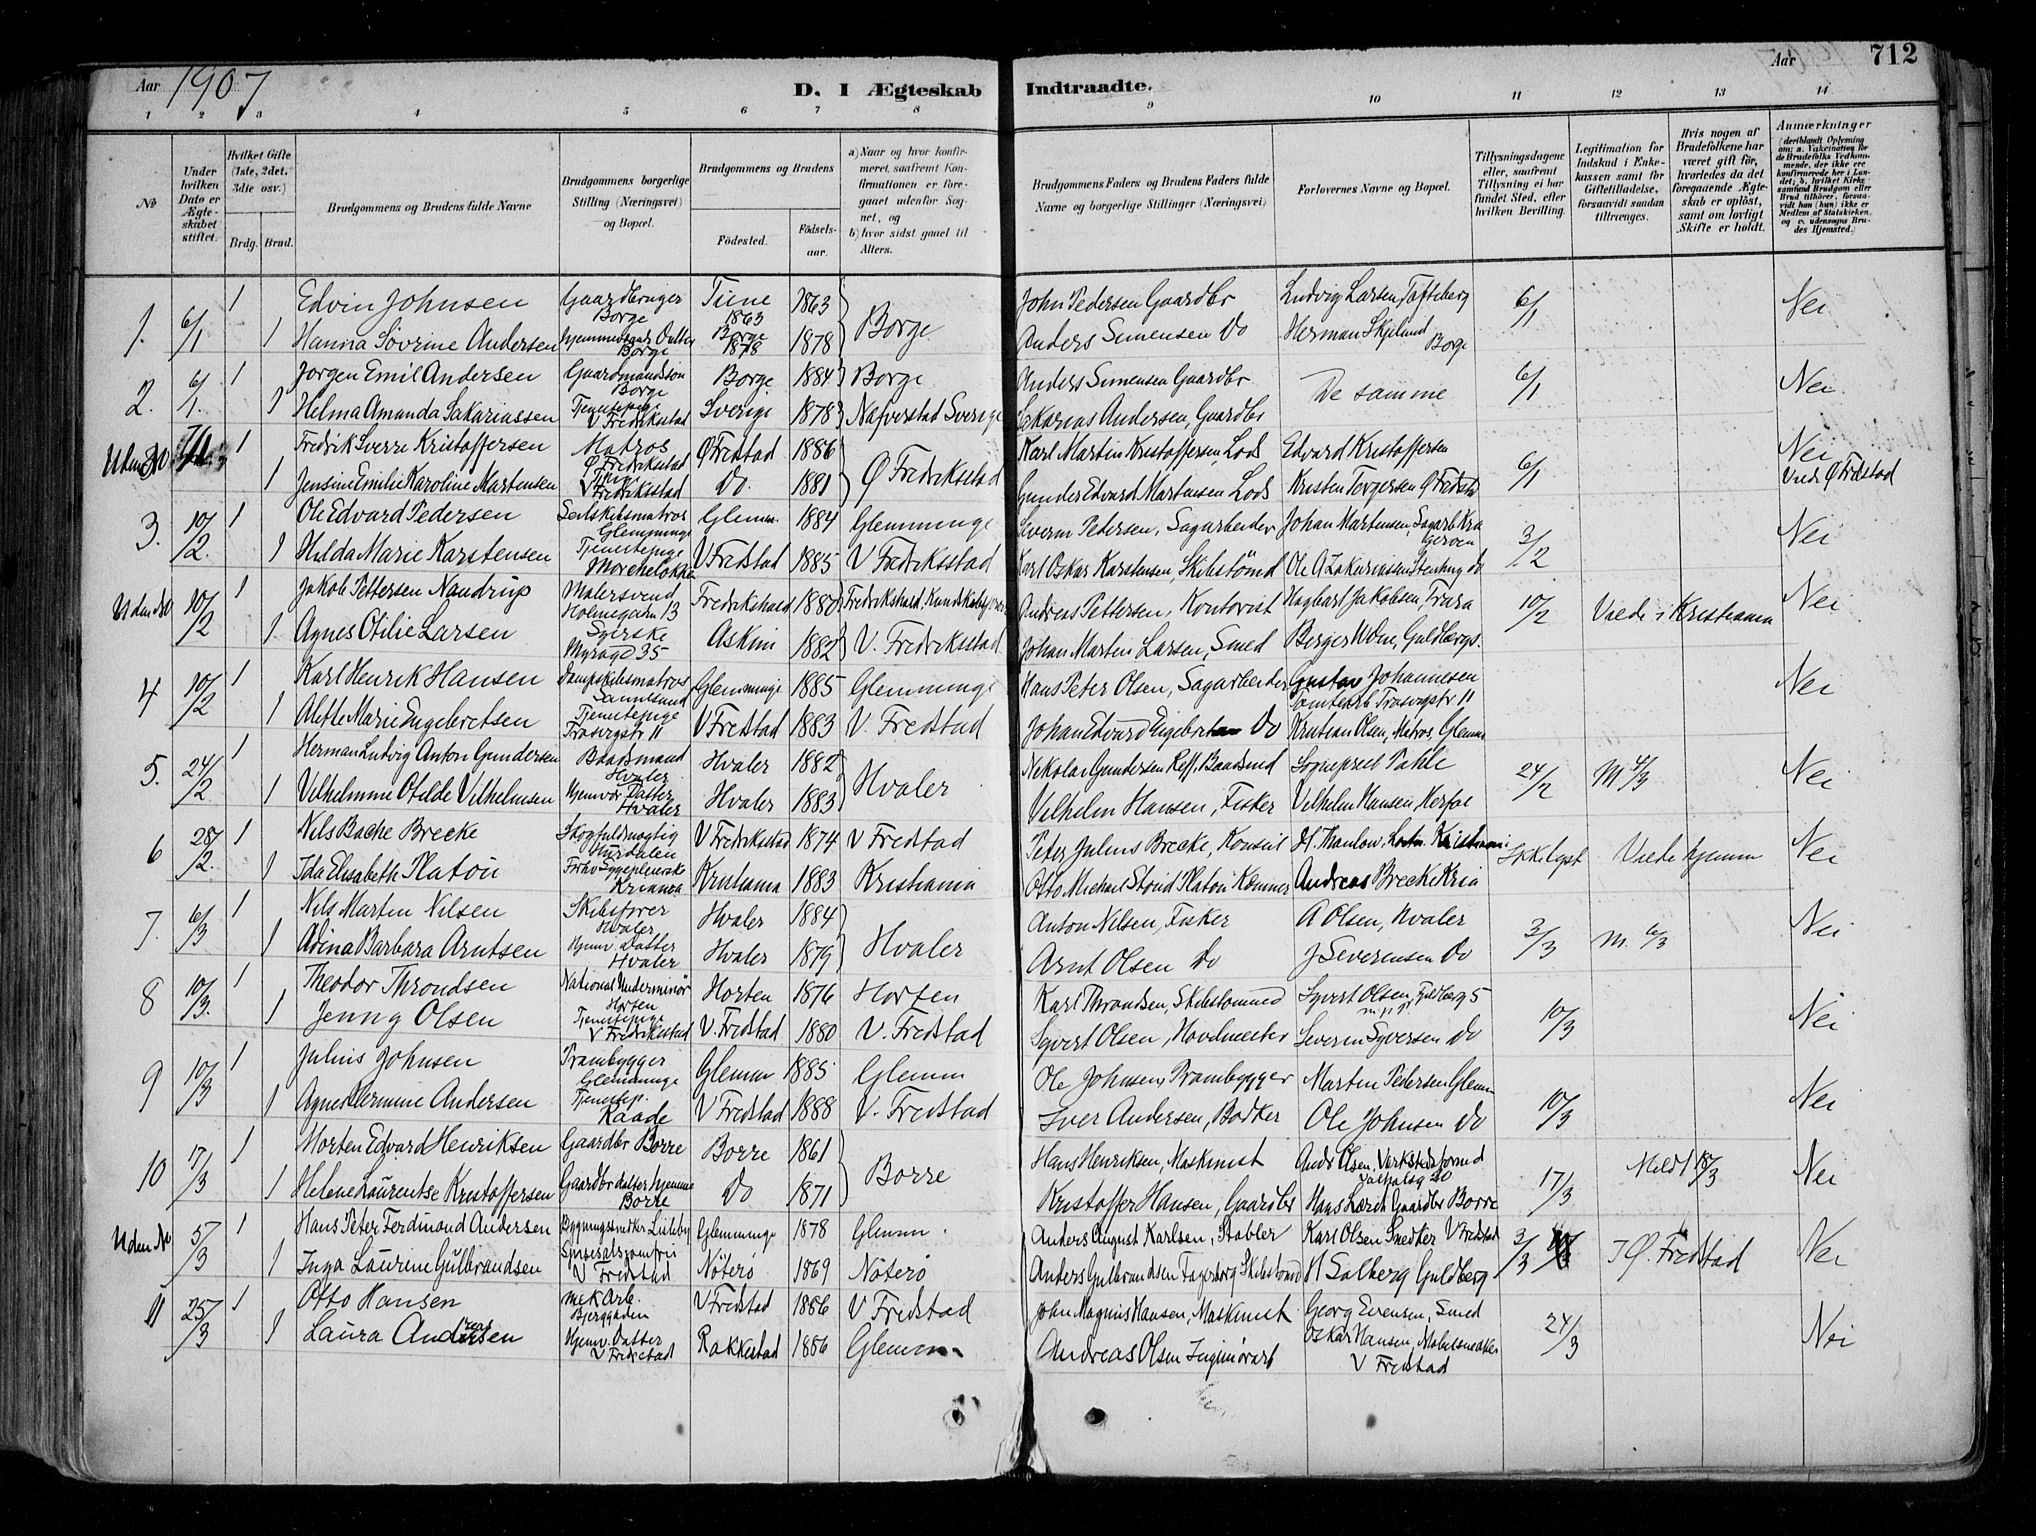 Aar 1907
D. I Ægteskab Indtraadte.
Aar
712
1 2 3 4 5 6 7 8 9 10 11 12 13 14
No
Under hvilken Dato er Ægteskabet stiftet.
Hvilket Gifte (1ste, 2det, 3die osv.)
Brdg. Brud.
Brudgommens og Brudens fulde Navne
Brudgommens borgerlige Stilling (Næringsvei) og Bopæl.
Brudgommens og Brudens
Fødested.
Fødselsaar.
a) Naar og hvor konfirmeret, saafremt Konfirmationen er foregaaet udenfor Sognet, og
b) hvor sidst gaaet til Alters.
Brudgommens Faders og Brudens Faders fulde Navne og borgerlige Stillinger (Næringsvei)
Forlovernes Navne og Bopæl.
Tillysningsdagene eller, saafremt Tillysning ei har fundet Sted, efter hvilken Bevilling.
Legitimation for Indskud i Enkekassen samt for Giftetilladelse, forsaavidt saadan tiltrænges.
Hvis nogen af Brudefolkene har været gift før, hvorledes da det foregaaende Ægteskab er opløst, samt om lovligt Skifte er holdt.
Anmærkninger
(deriblandt Oplysning om: a. Vakcination for de Brudefolks Vedkommende, der ikke ere konfirmerede her i Landet; b. hvilket Kirkesamfund Brudgom eller Brud tilhører, forsaavidt han (hun) ikke er Medlem af Statskirken, og c. udensogns Brudes Hjemsted.)
1. 6/1 1 Edvin Johnsen Gaardbruger Borge Tune 1863 1863 Borge John Pedersen Gaardbr Ludvig Larsen, Tofteberg 6/1 Nei
1 Hanna Sövrine Andersen Hjemmevær Datter Borge Borge 1878 1878 Anders Simensen Do Herman Skjelund Borge
2. 6/1. 1 Jørgen Emil Andersen Gaardmandssøn Borge Borge 1884 Borge Anders Simensen Gaardbr De samme 6/1 Nei
1 Helma Amanda Sakariassen Tjenestepige V Fredrikstad Sverige 1878 Nafverstad Sverige Sakarias Andersen, Gaardbr
Uden No 1 Fredrik Sverre Kristoffersen Matros Ø Fredrikstad Ø Fredstad 1886 Ø Fredriksstad Karl Martin Kristoffersen, Lods Edvard Kristoffersen 6/1 Nei
1 Jensine Emilie Karoline Martensen V Fredriksstad Do. 1881 Gunder Edvard Martensen Lods Kristen Torgersen Ø Fredstd Viede Ø Fredstad
3. 10/2. 1 Ole Edvard Pedersen Seilskibsmatros Glemminge Glemm. 1884 Glemminge Severin Petersen, Sagarbeider Johan Martensen, Sagarb Kra 3/2 Nei
1 Hilda Marie Karstensen Tjenestepige V Fredstad 1885 V Fredriksstad Karl Oskar Karstensen, Skibstømd Ole A Zakariassen do
Uden No 10/2 Jakob Pettersen Naudrup Malersvend Holmegaden 13 Fredrikshald 1880 Fredrikshald. Andreas Pettersen, Kontorist Hagbart Jakobsen, Trara 10/2 Viede i Kristiania Nei
1 Agnes Otilie Larsen Syerske Myragd 35 Askim 1882 V. Fredriksstad Johan Martin Larsen, Smed Berger Uden, Guldbergs.
4 10/2 1 Karl Henrik Hansen Dampskibsmatros Glemminge 1885 Glemminge Hans Peter Olsen, Sagarbeider Gustav Johannesen Tomtearb Trosvigstr 11 Nei
1 Alette Marie Engebretsen Tjenestepige Trosvigstr 11 V Fredstad 1883 V. Fredstad Johan Edvard Engebretsen Do Kristian Olsen, Matros, Glemm
5. 24/2 1 Herman Ludvig Anton Gundersen Baadsmand Hvaler Hvaler 1882 Hvaler Nikolai Gundersen Resp. Baadsmd Sogneprest Pahle 24/2 M 4/3 Nei
1 Vilhelmine Otilde Vilhelmsen Hjemvr. Datter Hvaler Hvaler 1883 Vilhelm Hansen, Fisker Vilhelm Hansen Herføl
6 28/2. 1 Nils Bache Brecke Skogfuldmægtig Hurdalen V Fredrikstad 1874 V Fredstad Peter Julius Brecke, Konsul H. Thaulow, Kristiania Viede hjemm Nei
1 Ida Elisabeth Platou Kristiania 1883 Kristiania Otto Michael Stoud Platou Andreas Brecke Kria
7. 6/3 1 Nils Martin Nilsen Skibsfører Hvaler Hvaler 1884 Hvaler Anton Nilsen, Fisker A Olsen, Hvaler 3/3 M. 6/3 Nei
1 Avina Barbara Arntsen Hjemv. Datter Hvaler Hvaler 1879 Arnt Olsen Do J Severensen Do
8 10/3. 1 Theodor Throndsen National Underminør Horten Horten 1876 Horten Karl Throndsen, Skibstømmd Syvert Olsen, Guldberg 5 10/3 Nei
1 Jenny Olsen Tjenestepige V Fredrikstad V. Fredstad 1880 V. Fredstad Syvert Olsen, Hovdmester Severin Syversen Do
9 10/3 1 Julius Johnsen Prambygger Glemminge Glemm 1885 Glemm Ole Johnsen, Prambygger Martin Pedersen Glemm 10/3 Nei
1 Agnes Hermine Andersen Tjenestep. Raade V Fredstad 1888 V. Fredstad Iver Andersen, Bødker Ole Johnsen Do
10 17/3 1 Morten Edvard Henriksen Gaardbr Borre Borre 1861 Borre Hans Henriksen, Maskinist Andr Olsen, Verkstedsformd 17/3 Meldt 18/3 Nei
1 Helene Laurentse Kristoffersen Gaardbr datter hjemme Borre Do 1871 Kristoffer Hansen, Gaardbr Hans Gaardbr Borre
Uden No 5/3 1 Hans Peter Ferdinand Andersen Bygningssnedker Lisleby Glemminge 1878 Glemm. Anders August Karlsen, Stabler Karl Olsen Snedker V Fredstad 3/3 I Ø. Fredstad Nei
1 Inga Laurine Gulbrandsen Spisesalsjomfru V Fredstad Nøterø 1869 Nøterø Anders Gulbrandsen Fagerborg Skibstømmd H Solberg Guldberg
11 25/3 1 Otto Hansen Mek Arb. Bjerggaden V Fredstad 1886 V Fredstad John Magnus Hansen, Maskinist Georg Evensen, Smed 24/3 Nei
1 Laura Andersen Hjemv. Datter V Fredstad Rakkestad 1886 Glemm. Andreas Olsen Oskar Hansen, Møbelsnedker V Fredstad